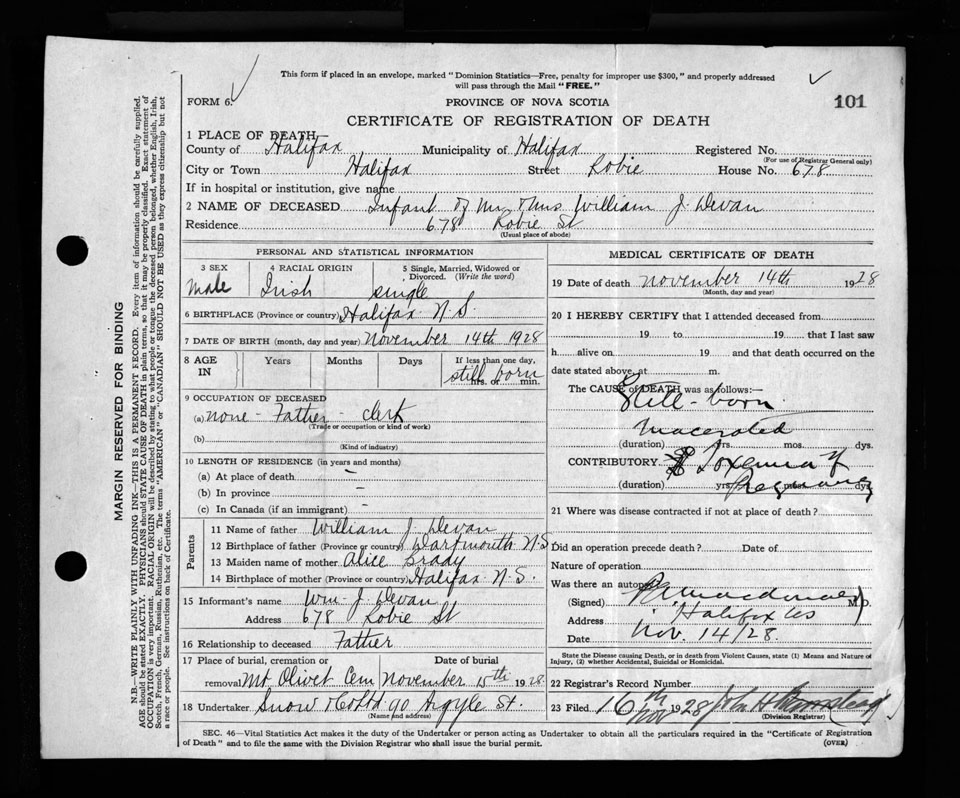 This form if placed in an envelope, marked "Dominion Statistics—Free, penalty for improper use $300," and properly addressed
will pass through the Mail "FREE."
FORM 6.
PROVINCE OF NOVA SCOTIA
101
CERTIFICATE OF REGISTRATION OF DEATH
1 PLACE OF DEATH—
County of Halifax Municipality of Halifax Registered No.
(For use of Registrar General only)
City or Town Halifax Street Robie House No. 678
If in hospital or institution, give name
2 NAME OF DECEASED Infant of Mr & Mrs William J. Devan
Residence 678 Robie St
(Usual place of abode)
PERSONAL AND STATISTICAL INFORMATION
3 SEX 4 RACIAL ORIGIN 5 Single, Married, Widowed or
Divorced. (Write the word)
Male Irish single
6 BIRTHPLACE (Province or country) Halifax N.S.
7 DATE OF BIRTH (month, day and year) November 14th 1928
8 AGE IN Years Months Days If less than one day,
still born
hrs. or min.
9 OCCUPATION OF DECEASED
(a) none - Father - clerk
(Trade or occupation or kind of work)
(b)
(Kind of industry)
10 LENGTH OF RESIDENCE (in years and months)
(a) At place of death —
(b) In province —
(c) In Canada (if an immigrant) —
Parents
11 Name of father William J. Devan
12 Birthplace of father (Province or country) Dartmouth N.S.
13 Maiden name of mother Alice Grady
14 Birthplace of mother (Province or country) Halifax N.S.
15 Informant's name Wm. J. Devan
Address 678 Robie St
16 Relationship to deceased Father
17 Place of burial, cremation or Date of burial
removal Mt Olivet Cem November 15th 1928
18 Undertaker Snow & Co Ltd 90 Argyle St.
(Name and address)
MEDICAL CERTIFICATE OF DEATH
19 Date of death November 14th 1928
(Month, day and year)
20 I HEREBY CERTIFY that I attended deceased from
19 to 19 that I last saw
h alive on 19 and that death occurred on the
date stated above, at m.
The CAUSE of DEATH was as follows:—
Still-born
Macerated
(duration) yrs. mos. dys.
CONTRIBUTORY Toxemia of
Pregnancy
(duration) yrs. mos. dys.
21 Where was disease contracted if not at place of death?
Did an operation precede death? Date of
Nature of operation
Was there an autopsy
(Signed) Macdonald M.D.
Address Halifax NS
Date Nov. 14/28
State the Disease causing Death, or in death from Violent Causes, state (1) Means and Nature of
Injury, (2) whether Accidental, Suicidal or Homicidal.
22 Registrar's Record Number
23 Filed 16th Nov 1928 John H
(Division Registrar)
SEC. 46—Vital Statistics Act makes it the duty of the Undertaker or person acting as Undertaker to obtain all the particulars required in the "Certificate of Registration
of Death" and to file the same with the Division Registrar who shall issue the burial permit.
(OVER)
MARGIN RESERVED FOR BINDING
N.B.—WRITE PLAINLY WITH UNFADING INK—THIS IS A PERMANENT RECORD. Every item of information should be carefully supplied.
AGE should be stated EXACTLY. PHYSICIANS should STATE CAUSE OF DEATH in plain terms, so that it may be properly classified. Exact statement of
OCCUPATION is very important. RACIAL ORIGIN will be described by stating to what people or tongue the deceased person belonged, whether English, Irish,
Scotch, French, German, Russian, Ruthenian, etc. The terms "AMERICAN" or "CANADIAN" SHOULD NOT BE USED as they express citizenship but not
a race or people. See instructions on back of Certificate.